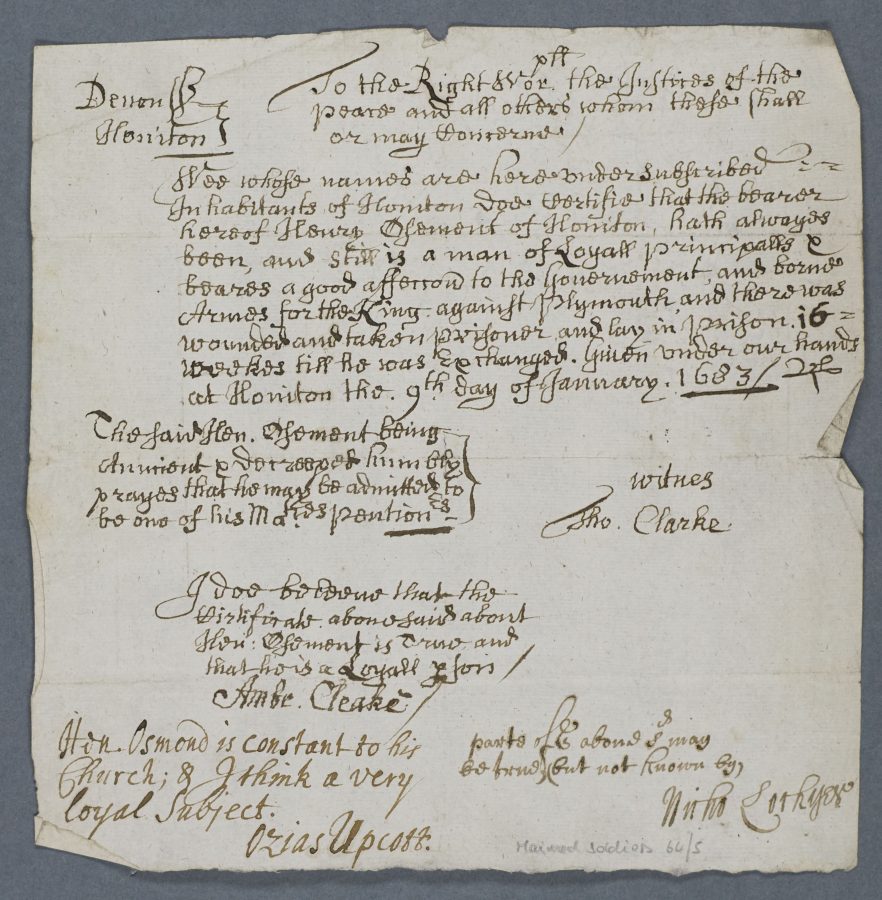 Devon ss
Honiton
To the Right Wor pll the Justices of the
peace and all others whom these shall
or may Concerne /
Wee whose names are here undersubscribed
Inhabitants of Honiton doe Certifie that the bearer
hereof Henry Osement of Honiton, hath alwayes
been, and still is a man of Loyall principalls &
beares a good affeccon to the Governement, and borne
Armes for the King against Plymouth, and there was
wounded and taken prisoner and lay in prison. 16 =
weekes till he was Exchanged. Given under our hands
at Honiton the. 9th day of January. 1683 /
The said Hen. Osement being
Anncient & decreeped humbly
prayes that he may be admitted to
be one of his Maties Pentionrs
witnes
Tho. Clarke
I doe beleeve that the
Cirtificate above said about
Hen: Osement is True and
that he is a Loyall pson /
Ambr. Cleake /
Hen Osmond is constant to his
Church; & I think a very
loyal Subject.
Ozias Upcott.
parte of above sd may
be true, (but not known by)
Nicho Lockyer
Maimed soldiers 64/5